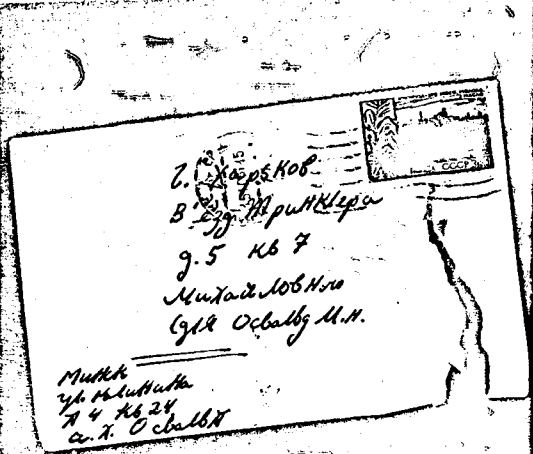 СССР
г. Харьков
В'езд Тринклера
д. 5 кв 7
Михайловной
(для Освальд М.Н.
Минск
ул. Калинина
д 4 кв 24
а. Х. Освальд